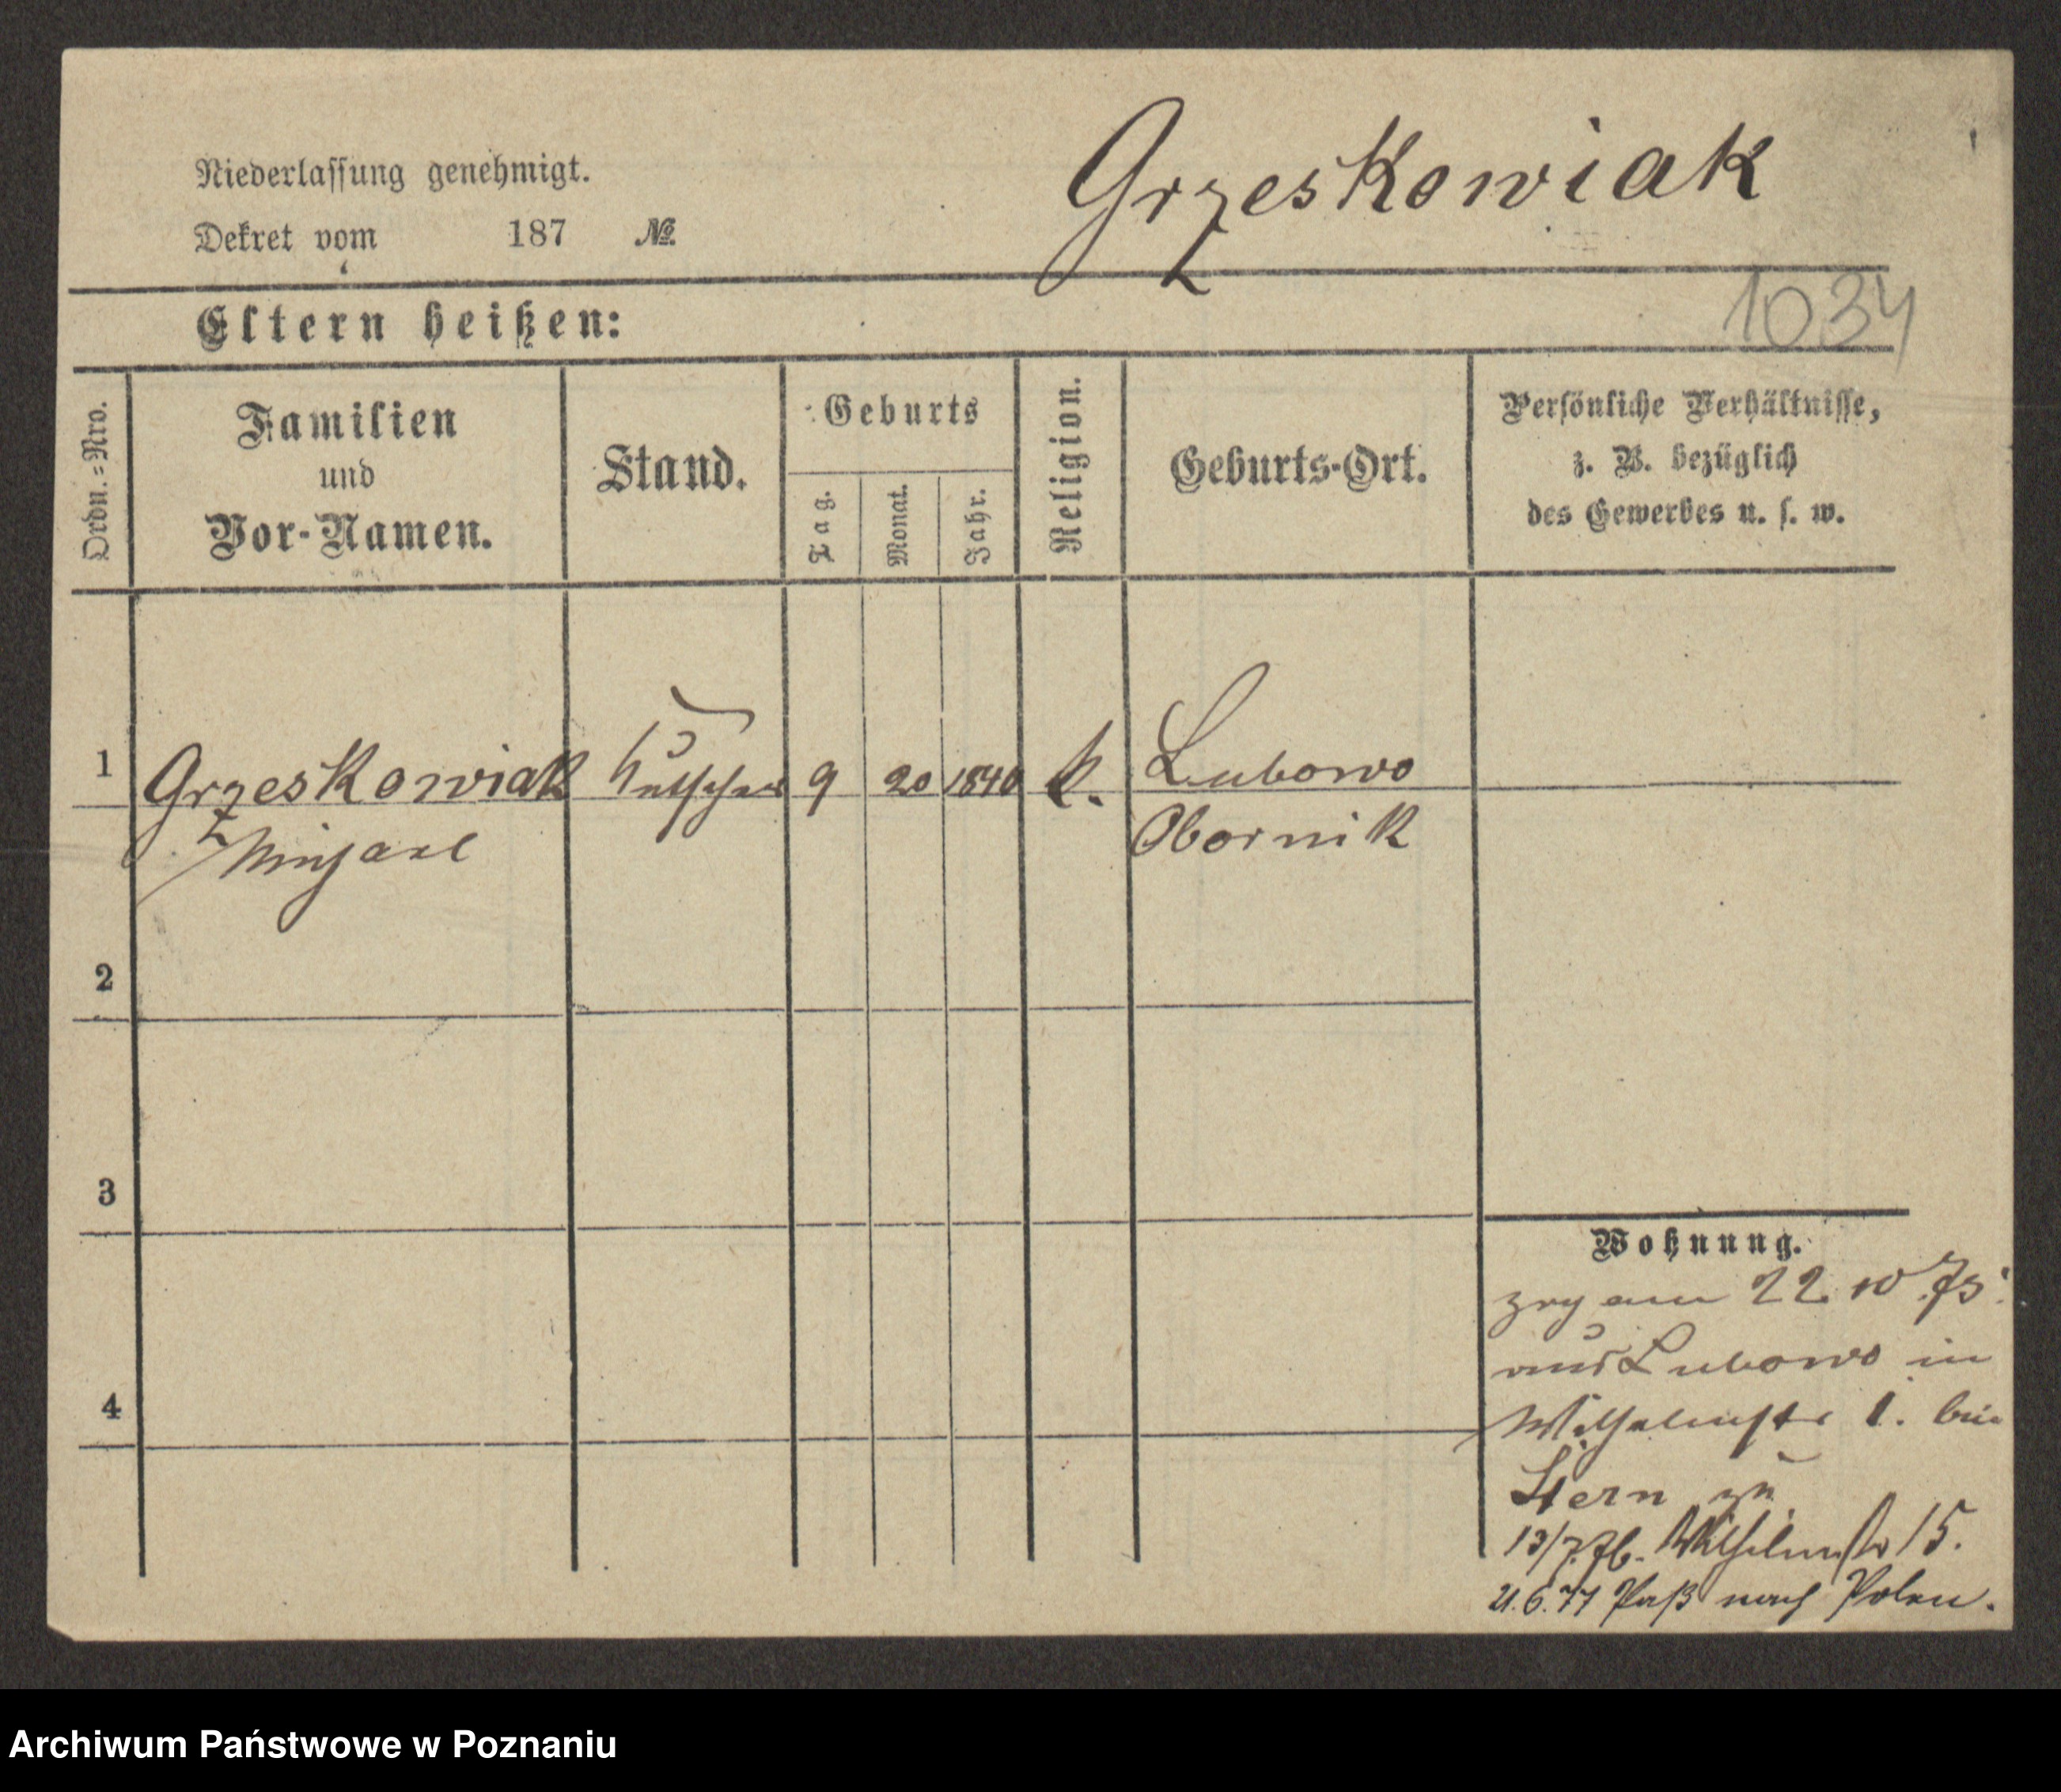 Niederlassung genehmigt.
Dekret vom 187 №
Grzeskowiak
1034
Eltern heißen:
Ordn.=Nro.
Familien
und
Vor-Namen.
Stand.
Geburts
Tag.
Monat.
Jahr.
Religion.
Geburts-Ort.
Persönliche Verhältnisse,
z. B. bezüglich
des Gewerbes u. s. w.
1 Grzeskowiak Kutscher 9 20 1840 k. Lubowo
Michael Obornik
2
3
4
Wohnung.
zog am 22 10. 75.
aus Lubowo in
Wilhelmstr 1. bei
Stern zu
13/7. 76. Wilhelmstr 15.
21.6.77 Paß nach Polen.
Archiwum Państwowe w Poznaniu